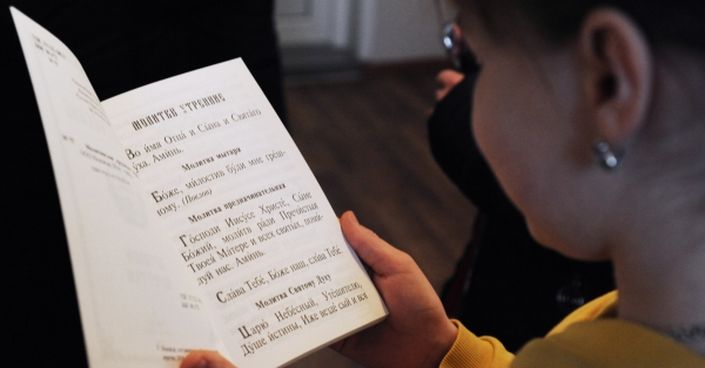 Молитвы утренние
Во и́мя Отца́ и Сы́на и Свята́го
у́ха. Ами́нь.
Молитва мытаря
Бо́же, ми́лостив бу́ди мне гре́ш-
ному. (Поклон)
Молитва предначинательная
Го́споди Иису́се Христе́, Сы́не
Бо́жий, моли́тв ра́ди Пречи́стыя
Твоея́ Ма́тере и всех святы́х, поми́-
луй нас. Ами́нь.
Сла́ва Тебе́, Бо́же наш, сла́ва Тебе́
Молитва Святому Духу
Царю́ Небе́сный, Уте́шителю,
Ду́ше и́стины, И́же везде́ сый и вся